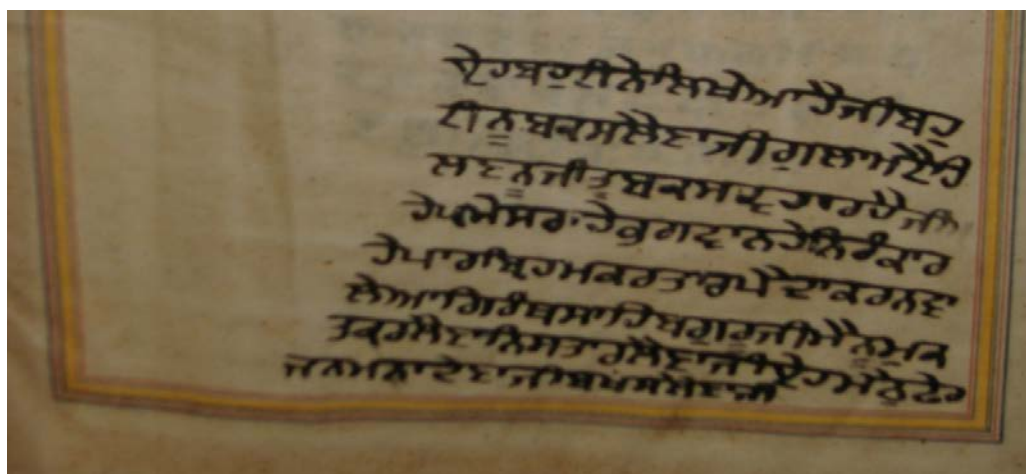 ਏਹ ਬਹੁਟੀ ਨੇ ਲਿਖੇਆ ਹੈ ਜੀ ਬਹੁ
ਟੀ ਨੂ ਬਕਸ ਲੈਣਾ ਜੀ ਗੁਲਾਮ ਹੈ ਜਿ
ਸ ਦਾ ਨੂ ਜੀ ਤੂ ਬਕਸਣ ਹਾਰ ਹੈ ਜੀ
ਹੇ ਪਮੇਸਰ ਹੇ ਭਗਵਾਨ ਹੇ ਨਿਰੰਕਾਰ
ਹੇ ਪਾਰਬ੍ਰਹਮ ਕਰਤਾਰ ਪੈਦਾ ਕਰਨ ਵਾ
ਲੇਆ ਗਿਰੰਥ ਸਾਹਿਬ ਗੁਰੂ ਜੀ ਮੈਨੂ ਮੁਕ
ਤ ਕਰ ਲੈਣਾ ਨਿਸਤਾਰ ਲੈਣਾ ਜੀ ਏਹ ਮੈਨੂ ਫੇਰ
ਜਨਮ ਨਾ ਦੇਣਾ ਜੀ ਬਖਸ ਲੈਣਾ ਜੀ